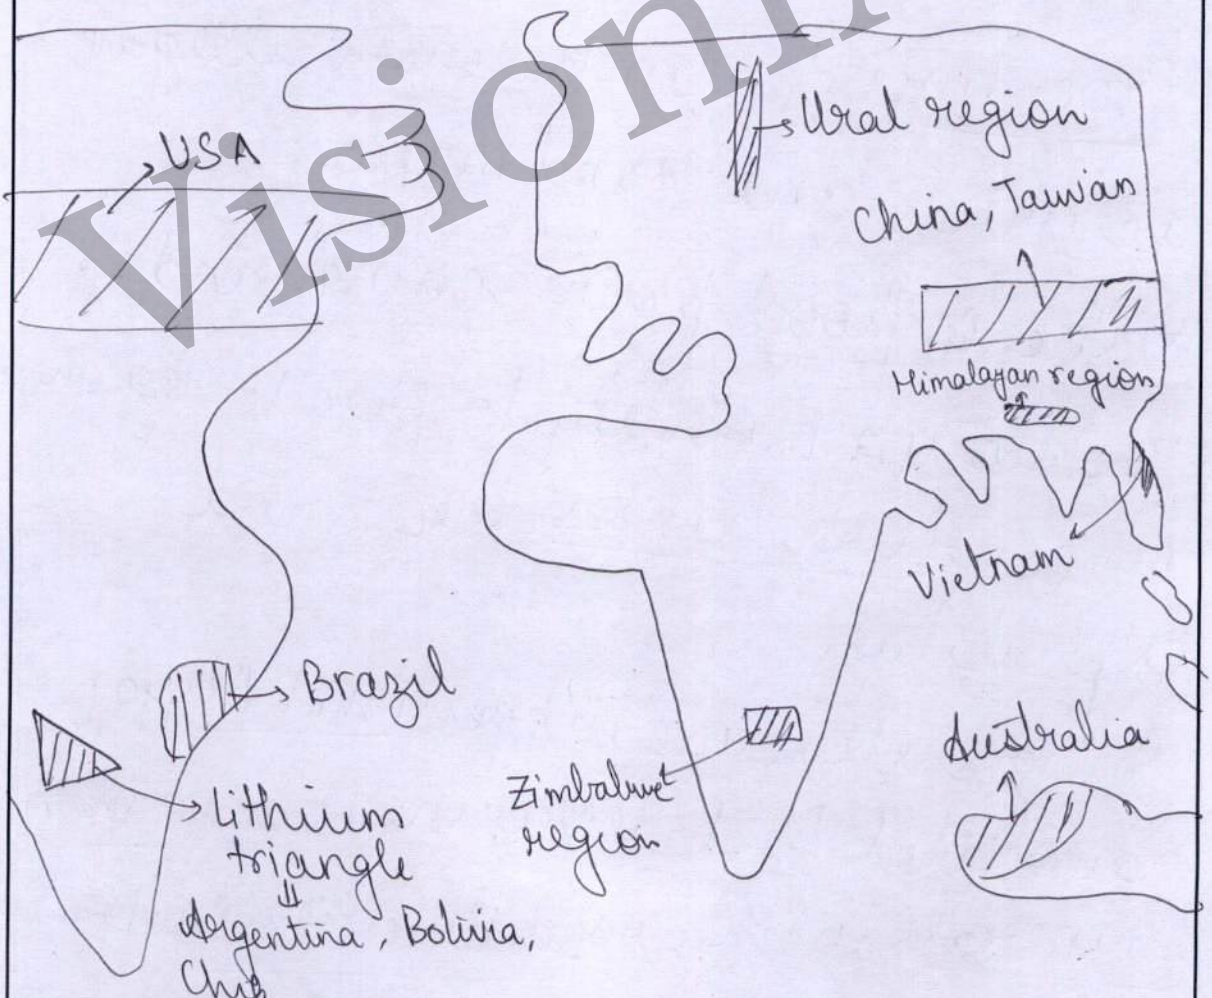 Vision
USA
Ural region
China, Taiwan
Himalayan region
Vietnam
Brazil
Lithium
triangle
Argentina, Bolivia,
Zimbabwe
region
Australia